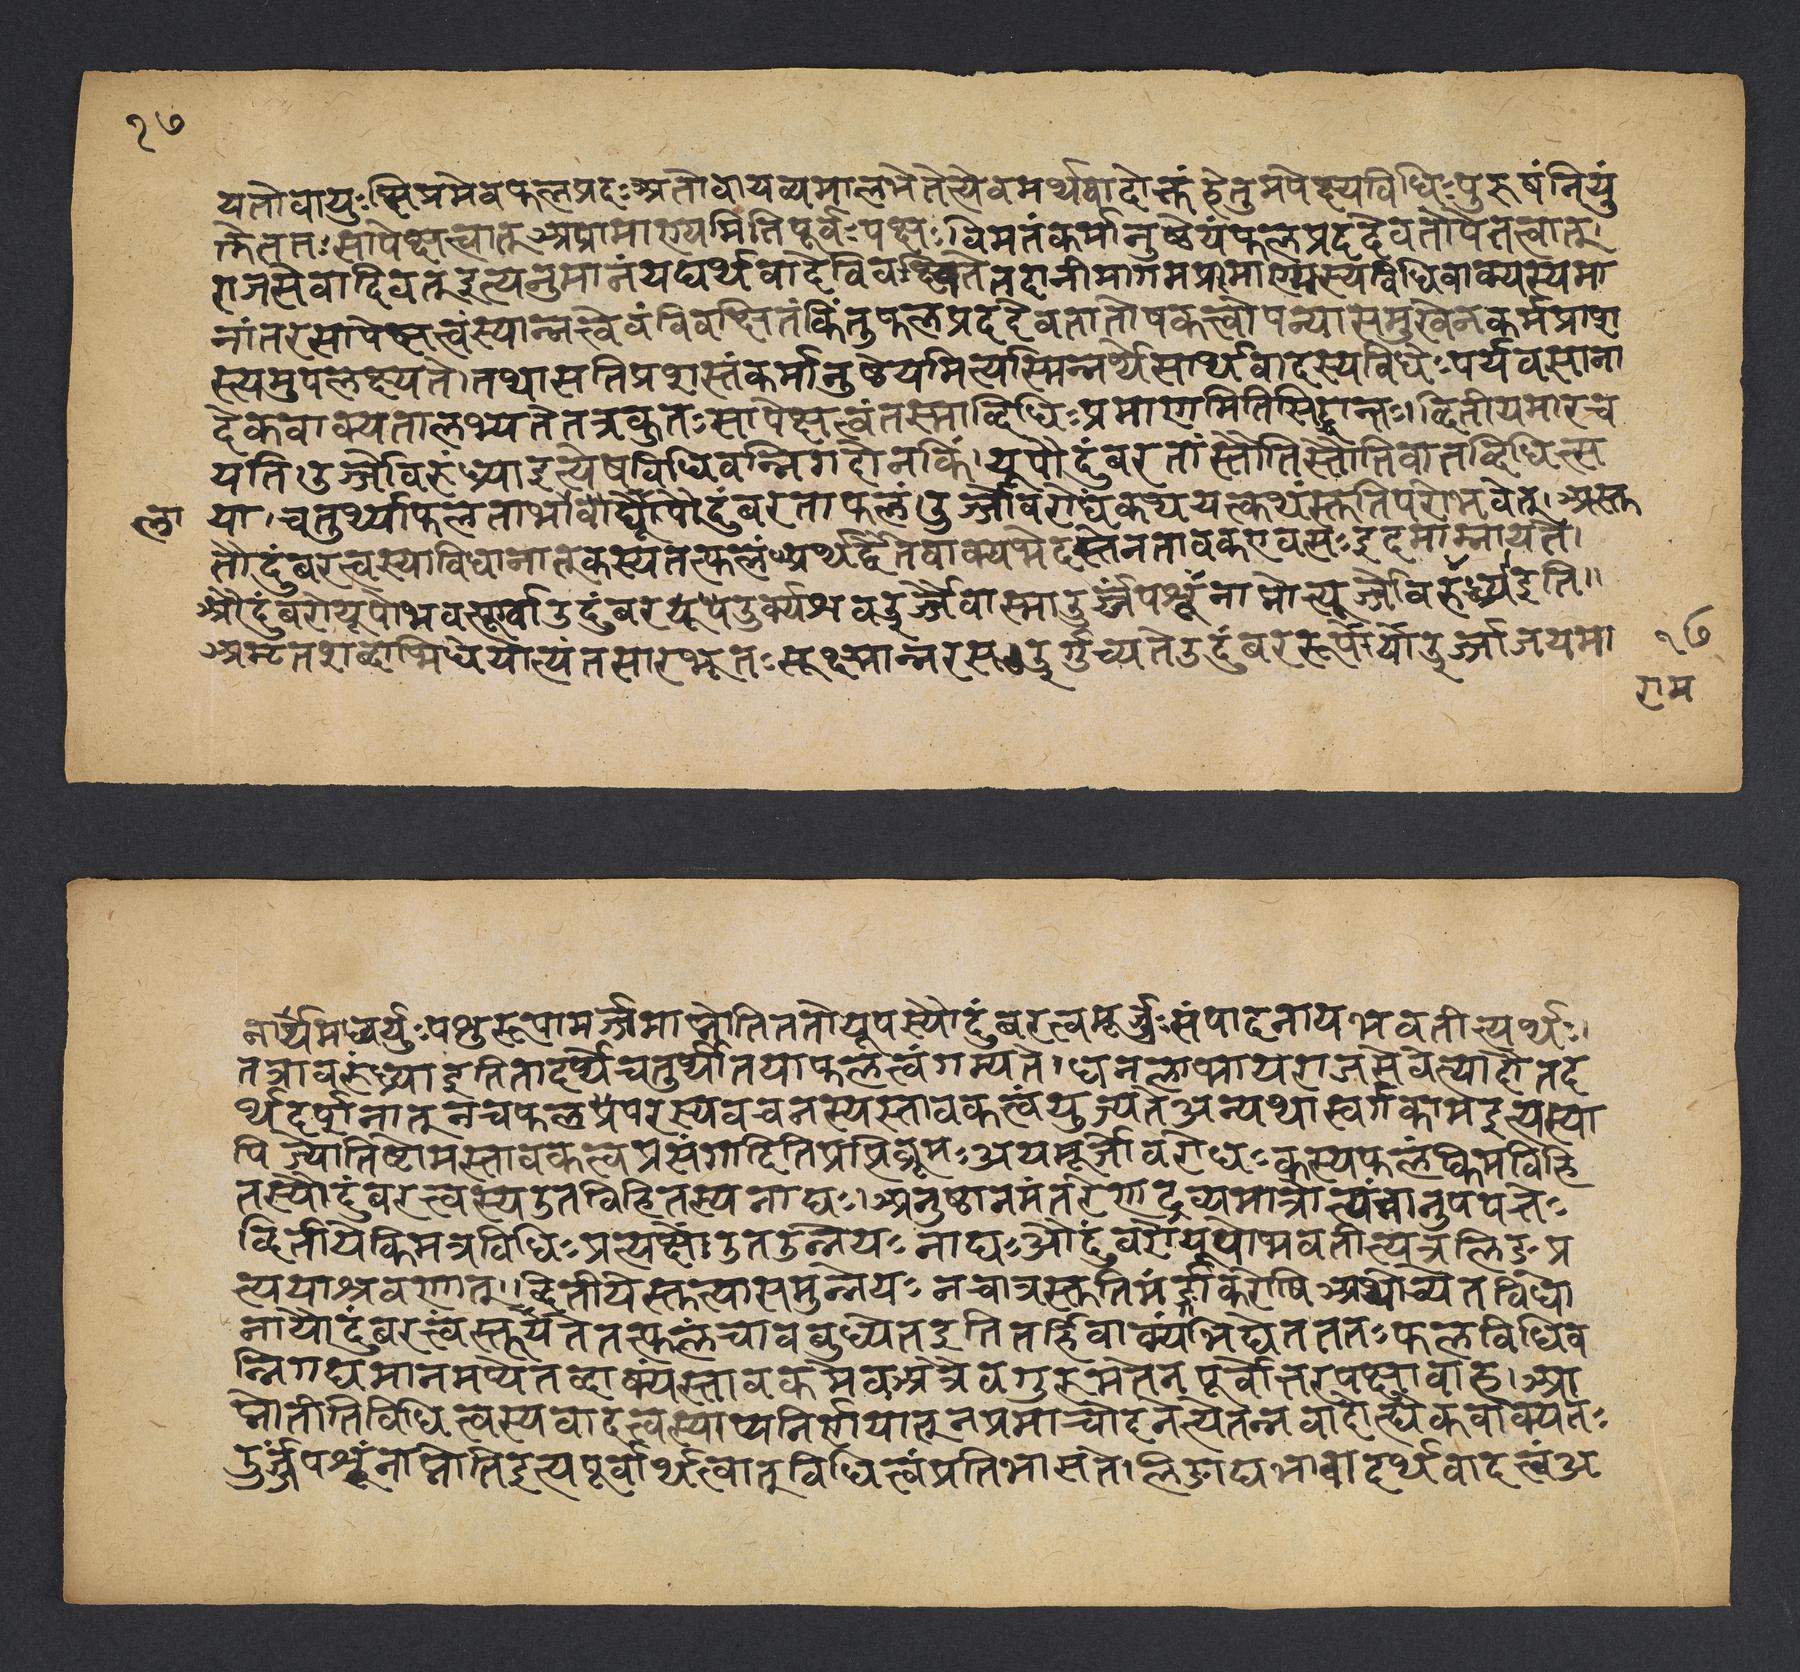 १७
यतोवायुःक्षिप्रमेवफलप्रदःअतोवायव्यमालभेतेत्येवमर्थवादोक्तंहेतुमपेक्ष्यविधिःपुरुषंनियुं
क्तेततःसापेक्षत्वात् अप्रामाण्यमितिपूर्वःपक्षःविमतंकर्मानुष्ठेयंफलप्रददैवतोपेतत्वात्।
राजसेवादिवत् इत्यनुमानंयद्यर्थवादेविवक्ष्येततदानीमागमप्रामाण्यस्यविधिवाक्यस्यमा
नांतरसापेक्षत्वंस्यान्नत्वेवंविवक्षितंकिंतुफलप्रददेवतातोषकत्वोपन्यासमुखेनकर्मप्राश
स्त्यमुपलक्ष्यते।तथासतिप्रशस्तंकर्मानुष्ठेयमित्यस्मिन्नर्थेसार्थवादस्यविधेःपर्यवसाना
देकवाक्यतालभ्यतेतत्रकुतःसापेक्षत्वंतस्माद्विधिःप्रमाणमितिसिद्धान्तः। द्वितीयमारच
यति।उर्ज्जोवरुंध्याइत्येषविधिवन्निगदोनकिं।यूपौदुंबरतांस्तौतिस्तौतिवातद्विधित्स
या।चतुर्थ्याफलताभावाद्यूपौदुंबरताफलं।उर्ज्जोवरोधंकथयत्कथंस्तुतिपरोभवेत्।अस्तु
ला
तौदुंबरत्वस्याविधानात्कस्यतत्फलंअर्थद्वैतेवाक्यभेदस्तेनतावकएवसःइदमाम्नायते।
औदुंबरोयूपोभवत्यूर्ग्वाउदुंबरयूपउर्क्पशवउर्ज्जैवास्माउर्ज्जंपशूंनाप्नोत्यूर्ज्जोवरुंध्यइति॥
अमृतशब्दाभिधेयोत्यंतसारभूतःसूक्ष्मान्नरसउर्गुच्यतेउदुंबररूपोर्योउर्ज्जाजयमा
१७
राम
नार्थमध्वर्युःपशुरूपामर्ज्जमाप्नोतिततोयूपस्यौदुंबरत्वमूर्ज्जःसंपादनायभवतीत्यर्थः।
तत्रावरुंध्याइतितादर्थ्येचतुर्थीतयाफलत्वंगम्यते।धनलाभायराजसेवेत्यादौतद
र्थदर्शनात् नचफलपरस्यवचनस्यस्तावकत्वंयुज्यतेअन्यथास्वर्गकामइत्यस्या
पिज्योतिष्टोमस्तावकत्वप्रसंगादितिप्राप्तेब्रूमःअयमूर्जोवरोधःकस्यफलंकिमविहि
तस्यौदुंबरत्वस्यउतविहितस्यनाद्यः।अनुष्ठानमंतरेणद्रव्यमात्रात्फलानुपपत्तेः
द्वितीयेकिमत्रविधिःप्रत्यक्षोउतउन्नेयःनाद्यःऔदुंबरोयूपोभवतीत्यत्रलिङप्र
त्ययाश्रवणात्।।द्वितीयेस्तुत्यासमुन्नेयःनचात्रस्तुतिमंगीकरोषिअथोच्येतविधा
नायौदुंबरत्वंस्तूयततत्फलंचावबुध्येतइतितर्हिवाक्यंभिद्येतततःफलविधिव
न्निगद्यमानमप्येतद्वाक्यंस्तावकमेवअत्रैवगुरुमतेनपूर्वोत्तरपक्षावाह।आ
प्नोतीतिविधित्वस्यवादत्वस्याप्यनिर्णयात्नप्रमाचोदनेत्येतन्नवादोत्थैकवाक्यतः
उर्ज्जंपशूंनाप्नोतिइत्यपूर्वार्थत्वात् विधित्वंप्रतिभासते।लिङाद्यभावादर्थवादत्वंअ